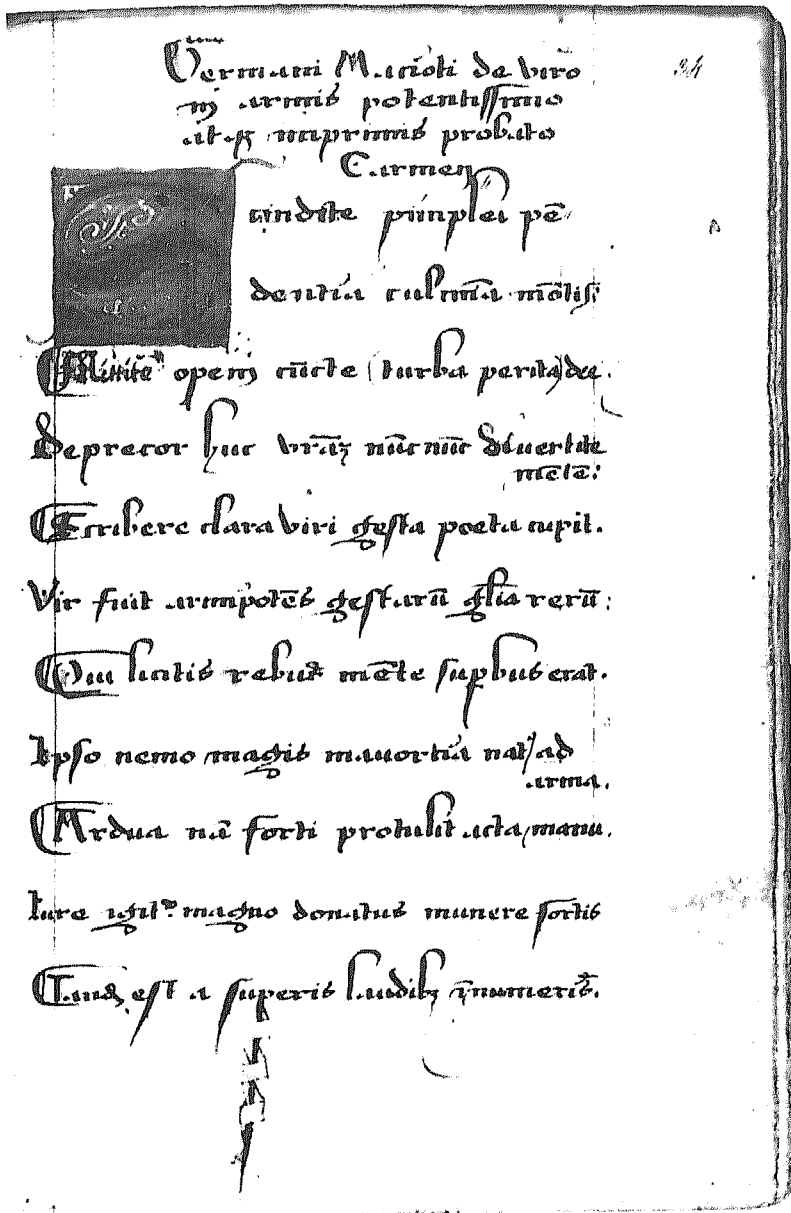 Germani Macioti de viro
in armis potentissimo
atqꝫ inprimis probato
Carmen
34
Pandite pimplei pē
dentia culmīa mōtis:
Mittite opem cūcte (turba perita) dee.
Deprecor huc vr̄aꝫ nūc nūc diuertite
mētē:
Scribere clara viri gesta poeta cupit.
Vir fuit armipotēs gestarū glīa rerū:
Qui licitis rebus mēte suꝑbus erat.
Ipso nemo magis mauortia natꝰ ad
arma.
Ardua nā forti protulit acta manu.
Iure igit᷑ magno donatus munere fortis
est a superis laudibꝫ innumeris.